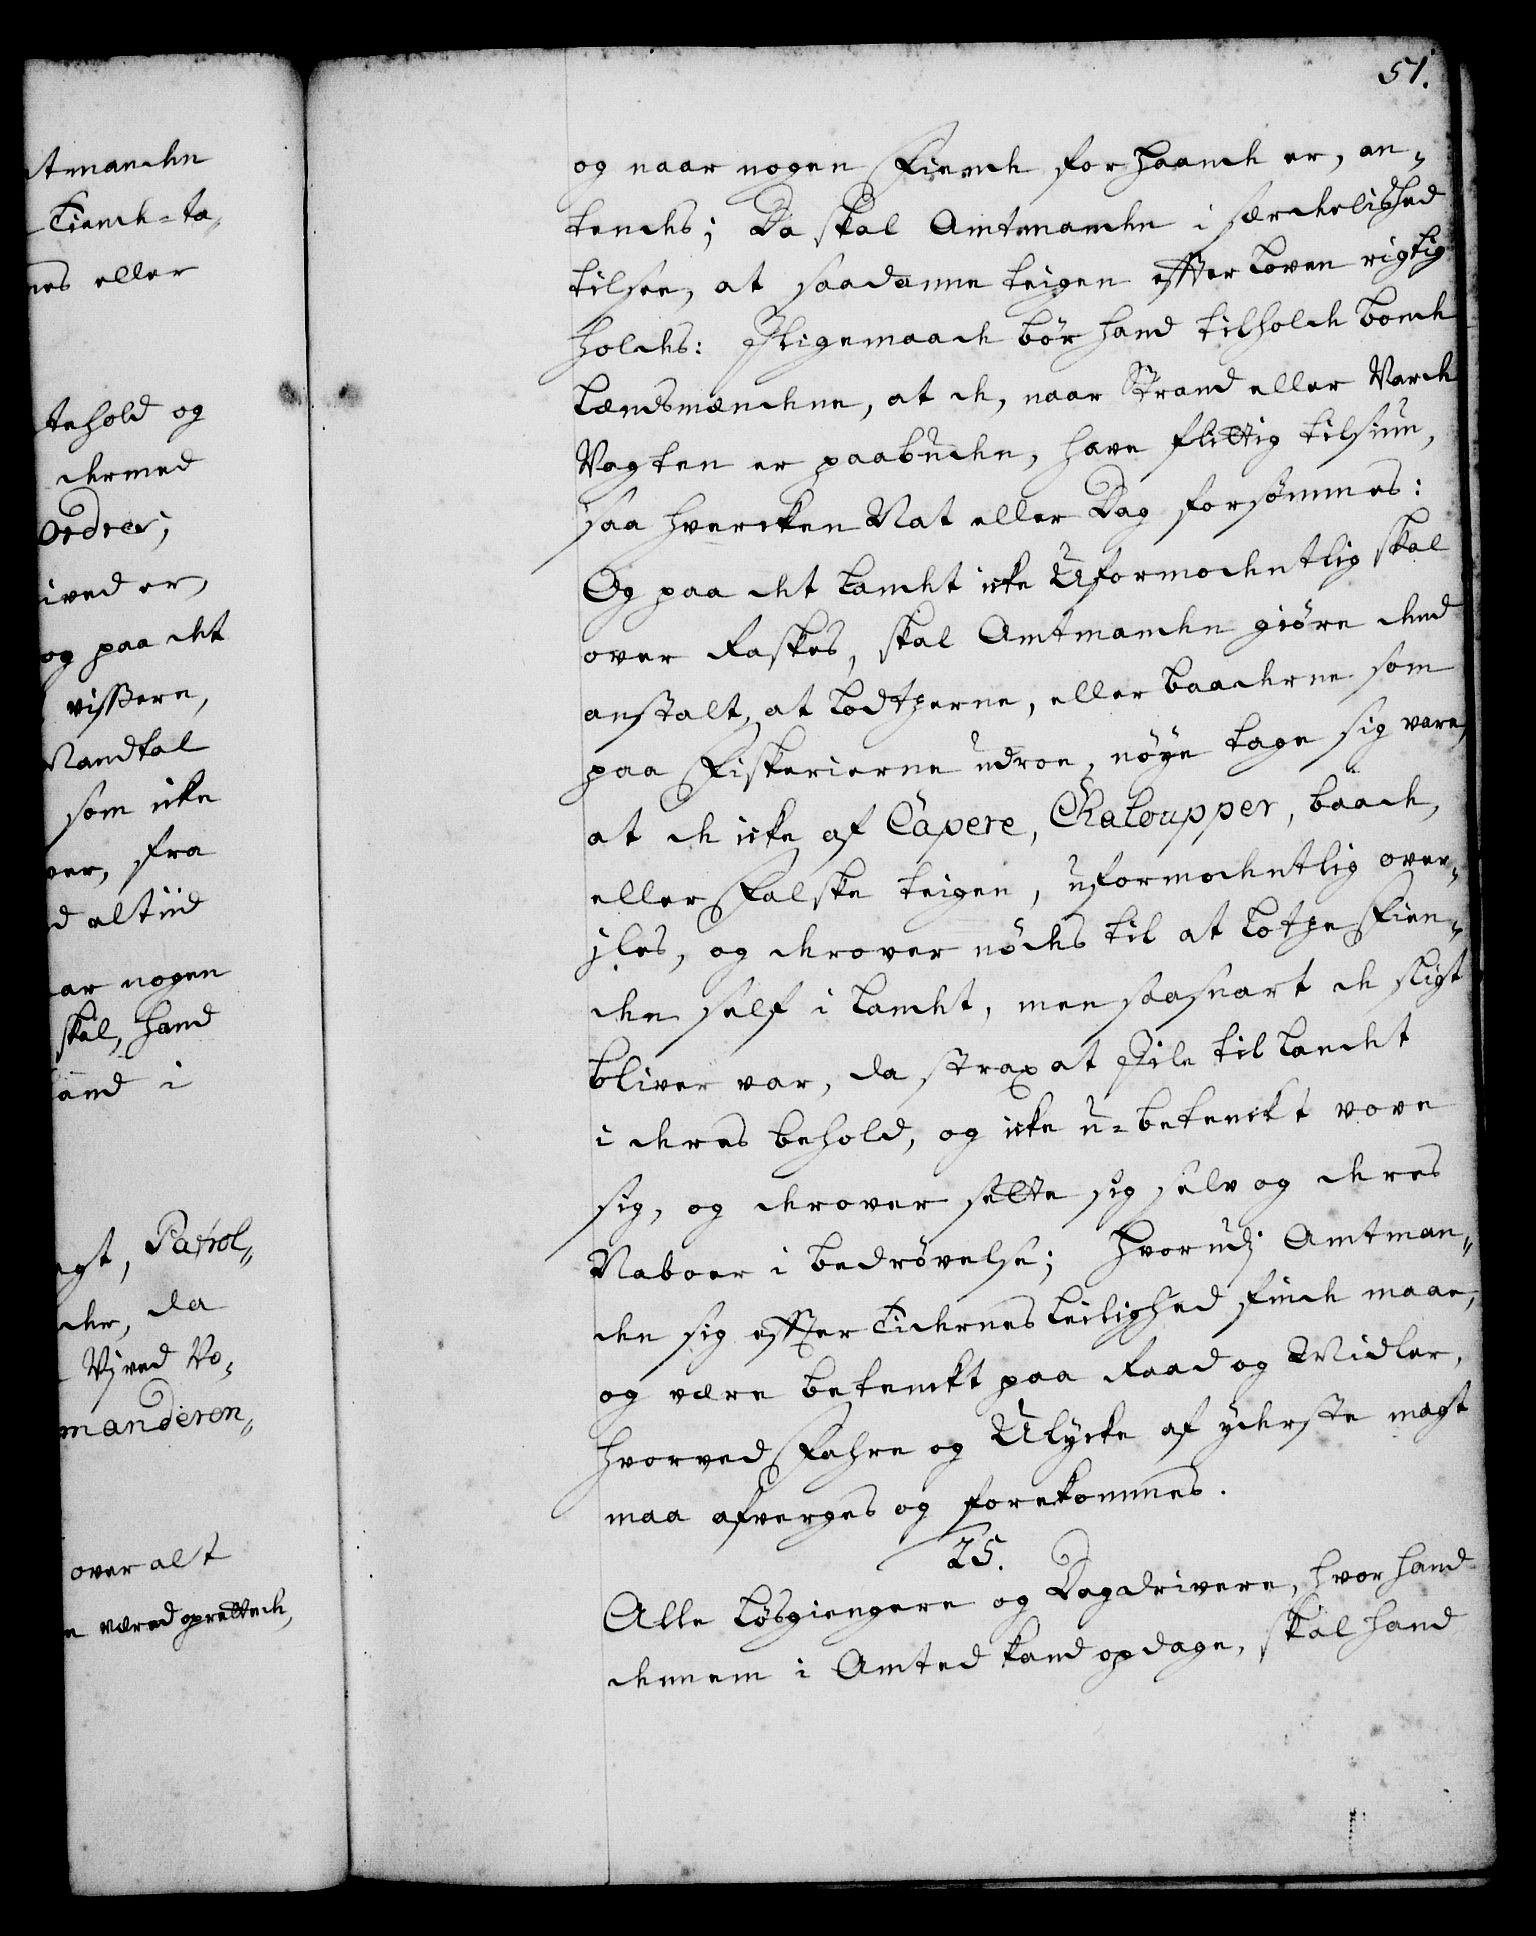 tmanden
Tiende-ta,
nes eller
tehold og
dermed
Ordres;
ived er,
og paa det
vissere,
Mandtal
som icke
ver, fra
d altiid
ar nogen
skal, hand
and i
egt, Patrol„
der, da
Vj ved Vo„
manderen„
over alt
e vered oprettede,
51.
og naar nogen Fiende for haande er, an„
tendes; Da skal Amtmanden i særdelished
tilsee, at saadanne teigen effter loven rigtig
holdes: Jligemaade bör hand tilholde bonde
Lændsmændene, at de, naar Strand eller Varde
Vagten er paabuden, have flittig tilsiun,
saa hvercken Nat eller Dag forsömmes:
Og paa det Landet icke Uformodentlig skal
over Raskes, skal Amtmanden giöre dend
anstalt, at Lodtzerne, eller baaderne som
paa Fiskerierne udroe, nöye tage sig vare,
at de icke af Capere, Chaloupper, baade,
eller Falske teigen, uformodentlig over„
jles, og derover nödes til at Lotze Fien„
den self i Landet, men saasnart de sligt
bliver var, da strax at Jile til Landet
i deres behold, og icke u-betenckt vove
sig, og derover sette sig selv og deres
Naboer i bedrövelse; Hvorudj Amtman„
den sig effter Tidernes Leilighed finde maae,
og være betenckt paa Raad og Midler,
hvorved Fahre og Ulycke af yderste magt
maa afverges og forekommes.
25.
Alle Lösgiengere og Dagdrivere, hvor hand
dennem i Amted kand opdage, skal hand